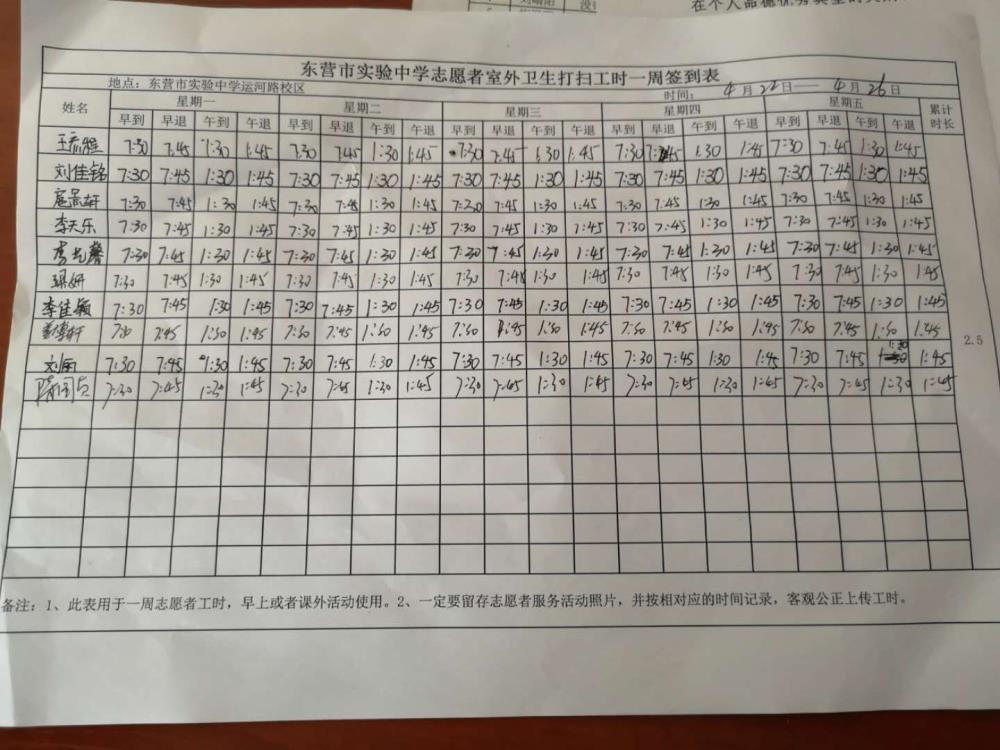 在个人品德优秀典型的
东营市实验中学志愿者室外卫生打扫工时一周签到表
地点：东营市实验中学运河路校区 时间： 4月22日——4月26日
姓名 星期一 星期二 星期三 星期四 星期五 累计时长
早到 早退 午到 午退 早到 早退 午到 午退 早到 早退 午到 午退 早到 早退 午到 午退 早到 早退 午到 午退
7:30 7:45 1:30 1:45 7:30 7:45 1:30 1:45 7:30 7:45 1:30 1:45 7:30 7:45 1:30 1:45 7:30 7:45 1:30 1:45
刘佳铭 7:30 7:45 1:30 1:45 7:30 7:45 1:30 1:45 7:30 7:45 1:30 1:45 7:30 7:45 1:30 1:45 7:30 7:45 1:30 1:45
扈景轩 7:30 7:45 1:30 1:45 7:30 7:45 1:30 1:45 7:30 7:45 1:30 1:45 7:30 7:45 1:30 1:45 7:30 7:45 1:30 1:45
李天乐 7:30 7:45 1:30 1:45 7:30 7:45 1:30 1:45 7:30 7:45 1:30 1:45 7:30 7:45 1:30 1:45 7:30 7:45 1:30 1:45
7:30 7:45 1:30 1:45 7:30 7:45 1:30 1:45 7:30 7:45 1:30 1:45 7:30 7:45 1:30 1:45 7:30 7:45 1:30 1:45
7:30 7:45 1:30 1:45 7:30 7:45 1:30 1:45 7:30 7:45 1:30 1:45 7:30 7:45 1:30 1:45 7:30 7:45 1:30 1:45
李佳颖 7:30 7:45 1:30 1:45 7:30 7:45 1:30 1:45 7:30 7:45 1:30 1:45 7:30 7:45 1:30 1:45 7:30 7:45 1:30 1:45
7:30 7:45 1:30 1:45 7:30 7:45 1:30 1:45 7:30 7:45 1:30 1:45 7:30 7:45 1:30 1:45 7:30 7:45 1:30 1:45
刘雨 7:30 7:45 1:30 1:45 7:30 7:45 1:30 1:45 7:30 7:45 1:30 1:45 7:30 7:45 1:30 1:45 7:30 7:45 1:30 1:45 2.5
7:30 7:45 1:30 1:45 7:30 7:45 1:30 1:45 7:30 7:45 1:30 1:45 7:30 7:45 1:30 1:45 7:30 7:45 1:30 1:45
备注：1、此表用于一周志愿者工时，早上或者课外活动使用。2、一定要留存志愿者服务活动照片，并按相对应的时间记录，客观公正上传工时。